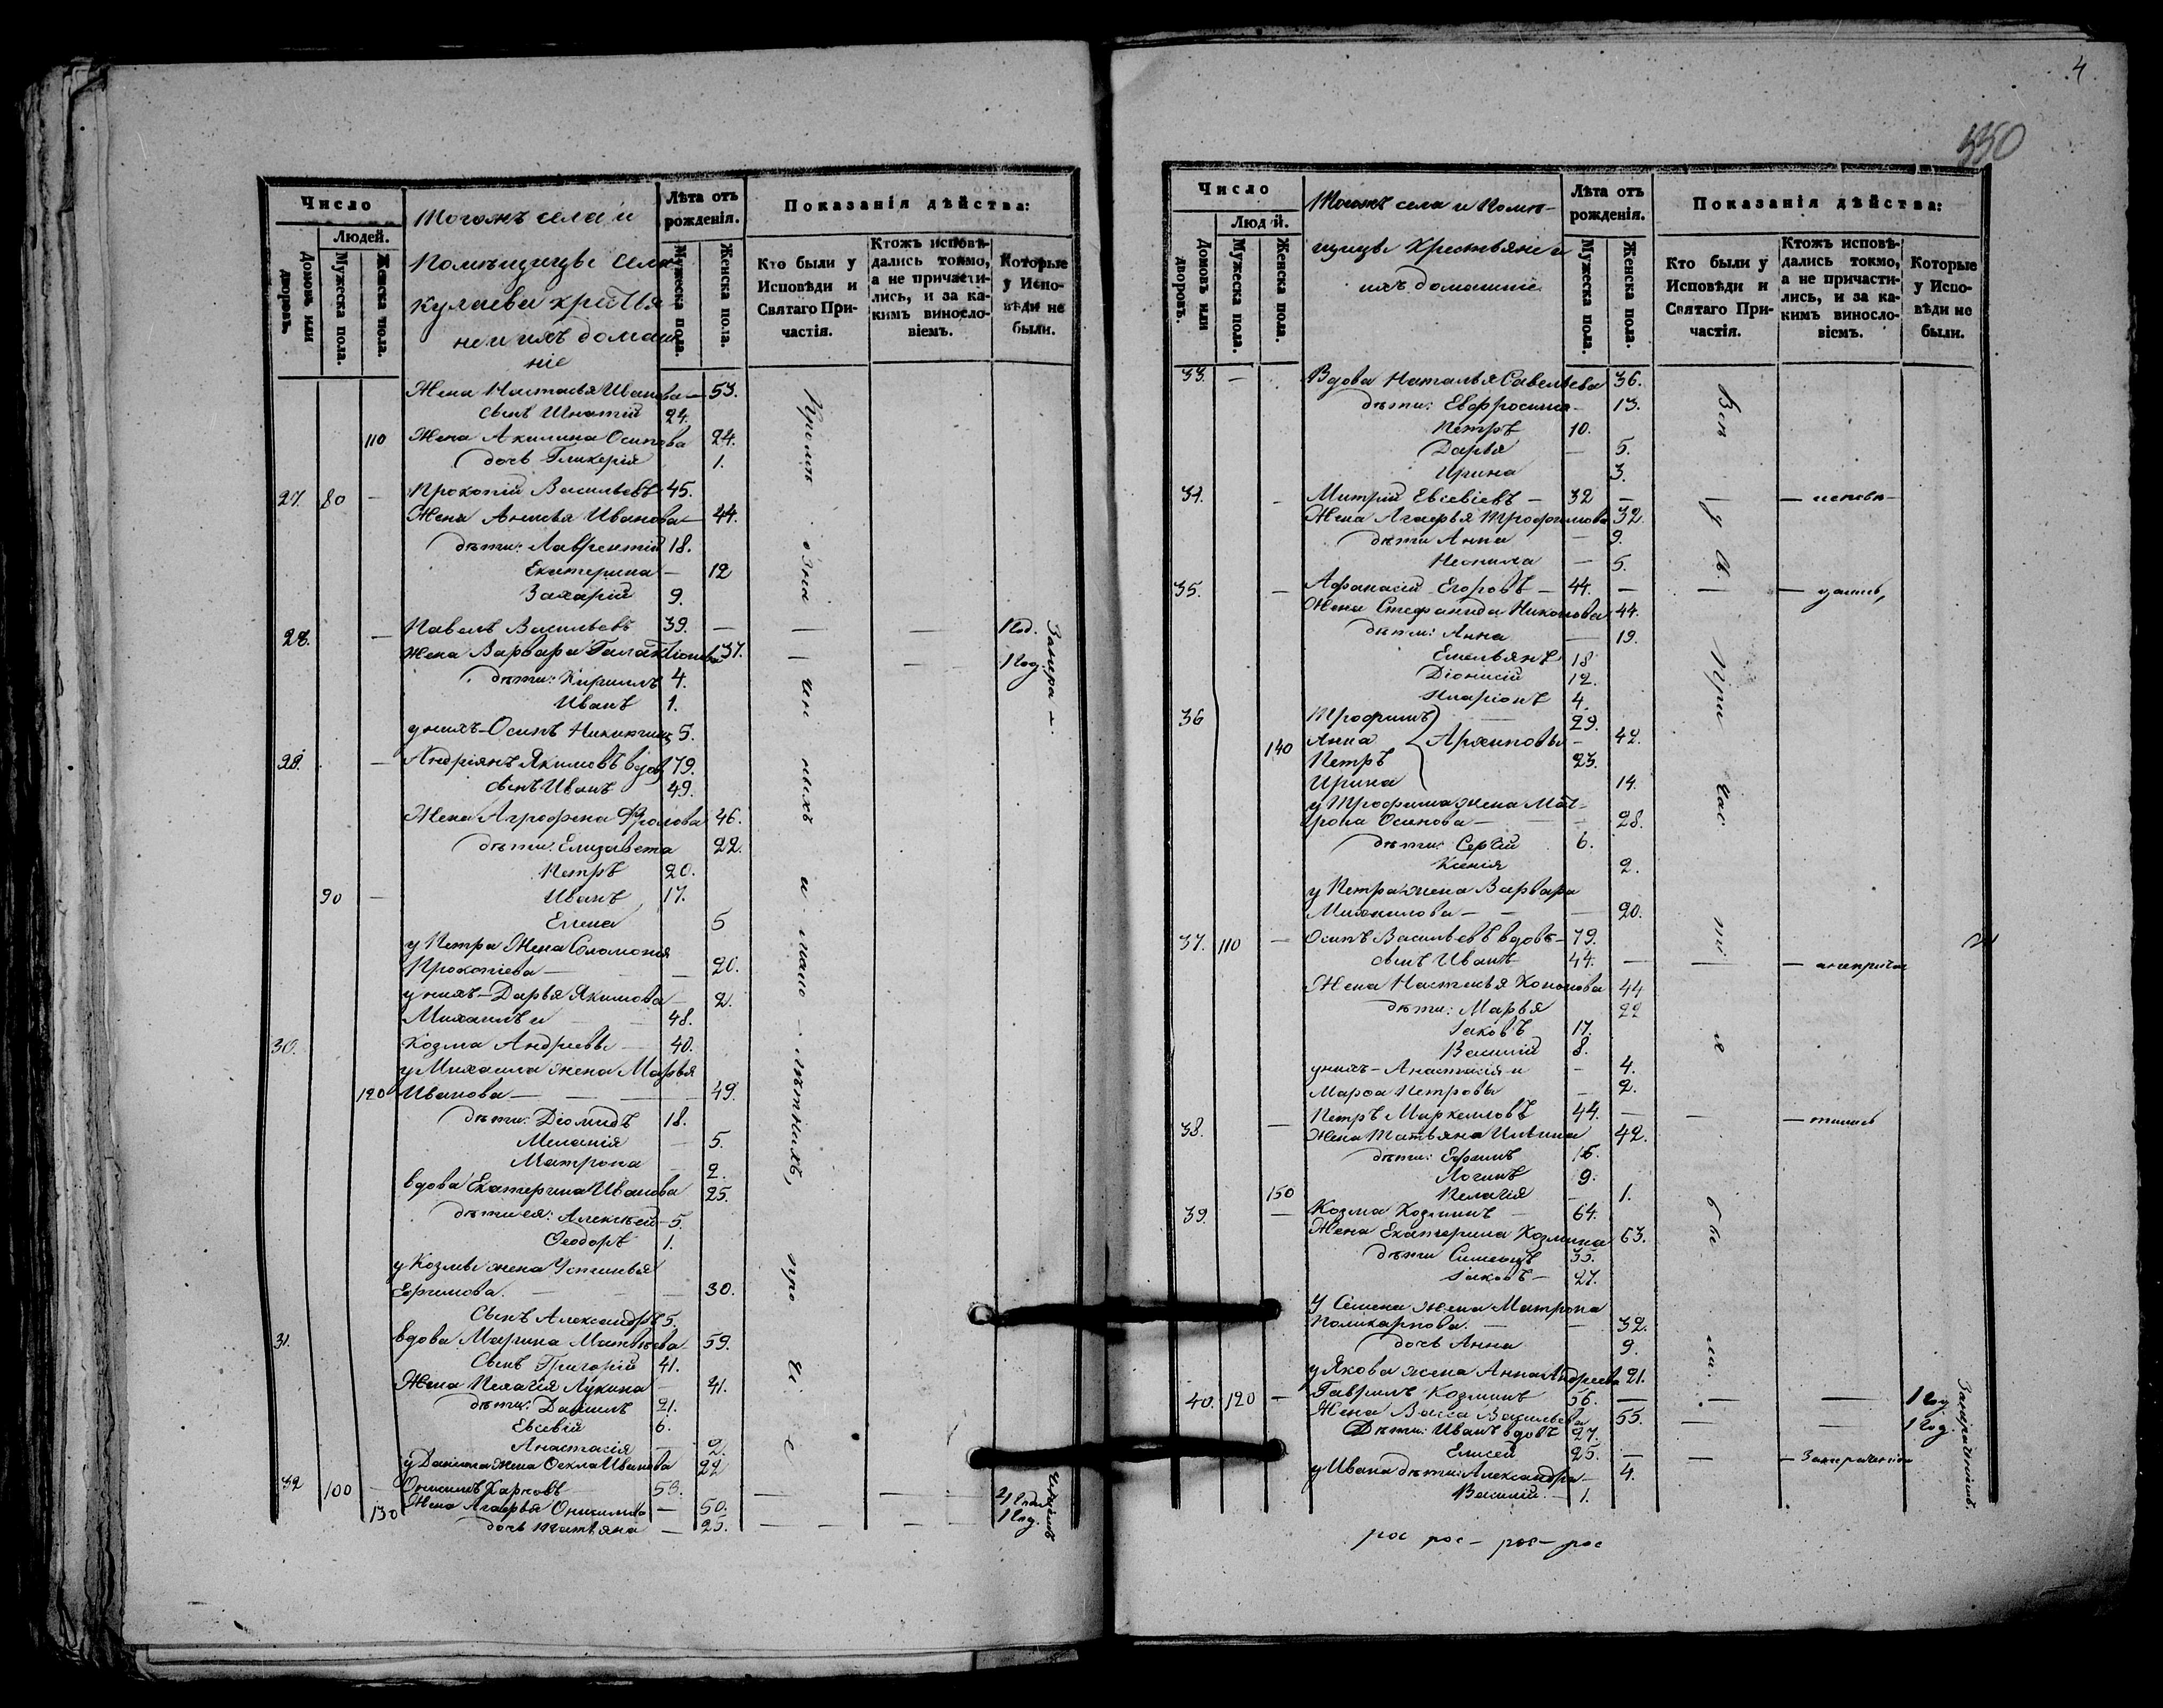 Число
Людей.
Домовъ или дворовъ.
Мужеска пола.
Женска пола.
Тогожъ села и
Помѣщицы Селе
кулаева кресть
не и ихъ домаш
ніе
Лѣта отъ рожденія.
Мужеска пола.
Женска пола.
Показанія дѣйства:
Кто были у Исповѣди и Святаго Причастія.
Ктожъ исповѣдались токмо, а не причастились, и за какимъ винословіемъ.
Которые у Исповѣди не были.
Жена Настасья Иванова — 53.
сынъ Игнатій 24.
110 Жена Акилина Осипова 24.
дочь Гликерія 1.
27. 80 — Прокопій Васильевъ 45.
Жена Анисья Иванова — 44.
дѣти: Лаврентій 18.
Екатерина — 12
Захарій 9.
28. — Павелъ Васильевъ 39. — — — 1 год.
Жена Варвара Галактіонова 37. — — 1 год.
дѣти: Кириллъ 4.
Иванъ 1.
у нихъ — Осипъ Никитинъ 5.
29. — Андріянъ Якимовъ вдов 79.
сынъ Иванъ 49.
Жена Агрофена Фролова 46.
дѣти: Елизавета 22.
Петръ 20.
90 — Иванъ 17.
Елена 5
у Петра Жена Соломонія
Прокопіева — — 20.
у нихъ — Дарья Якимова — 2.
Михаилъ и 48.
30. Козма Андреевы — 40.
у Михаила жена Марья
120 Иванова — — 49.
дѣти: Діомидъ 18.
Меланія — 5.
Матрона 2.
вдова Екатерина Иванова 25.
дѣти ея: Алексѣй — 5.
Ѳеодоръ 1.
у Козмы жена Устинья
Ефимова. — — 30.
Сынъ Александръ 5.
31. вдова Марина Матвѣева 59.
Сынъ Григорій 41.
Жена Пелагія Лукина — 41.
дѣти: Даніилъ 21.
Евсевій 6.
Анастасія — 2.
у Данила жена Ѳекла Иванова 22
32 100 — Онисимъ Карповъ — 53. — — 2 года
130 Жена Агафья Онисимова — 50. 1 год.
дочь Татьяна — 25. — — — —
Кромѣ означенныхъ и мало-лѣтнихъ, прочіе
4
350
Число
Людей.
Домовъ или дворовъ.
Мужеска пола.
Женска пола.
Тогожъ села и Помѣ-
щицы Крестьяне и
ихъ домашніе
Лѣта отъ рожденія.
Мужеска пола.
Женска пола.
Показанія дѣйства:
Кто были у Исповѣди и Святаго Причастія.
Ктожъ исповѣдались токмо, а не причастились, и за какимъ винословіемъ.
Которые у Исповѣди не были.
33. — Вдова Наталья Савельева 36.
дѣти: Евфросинія — 13.
Петръ 10.
Дарья — 5.
Ирина 3.
34. — Митрій Евсевіевъ — 32 — — исповѣ-
Жена Агафья Трофимова 32.
дѣти Анна — 9.
Неонила — 5.
35. — Афанасій Егоровъ — 44. — — дались,
Жена Стефанида Никонова 44.
дѣти: Анна — 19.
Емельянъ 18
Діонисій 12.
Иларіонъ 4.
36 Трофимъ — 29.
140 Анна Архиповы — 42.
Петръ 23.
Ирина 14.
у Трофима жена Мат-
рона Осипова — — 28.
дѣти: Сергій 6.
Ксенія 2.
у Петра жена Варвара
Михаилова — — 20.
37. 110 — Осипъ Васильевъ вдовъ — 79.
сынъ Иванъ 44. — — а не прича
Жена Настасья Кононова 44
дѣти: Марья 22
Іаковъ 17.
Василій 8.
у нихъ — Анастасія и — 4.
Марѳа Петровы — 2.
38. — Петръ Маркелловъ 44. — — — стились
Жена Татьяна Ильина 42.
дѣти: Ефимъ 16.
Логинъ 9.
150 Пелагія — 1.
39. — Козма Козминъ — 64.
Жена Екатерина Козмина 63.
дѣти Симеонъ 35.
Іаковъ — 27.
У Семена жена Матрона
Поликарпова. — — 32.
дочь Анна 9.
у Якова жена Анна Андреева 21.
40. 120 — Гавріилъ Козминъ 56. — — — 1 год
Жена Васса Васильева 55. — — 1 год.
Дѣти: Иванъ вдовъ 27.
Елисей 25. — — —
у Ивана дѣти: Александра — 4.
Василій — 1.
рос рос — рос — рос